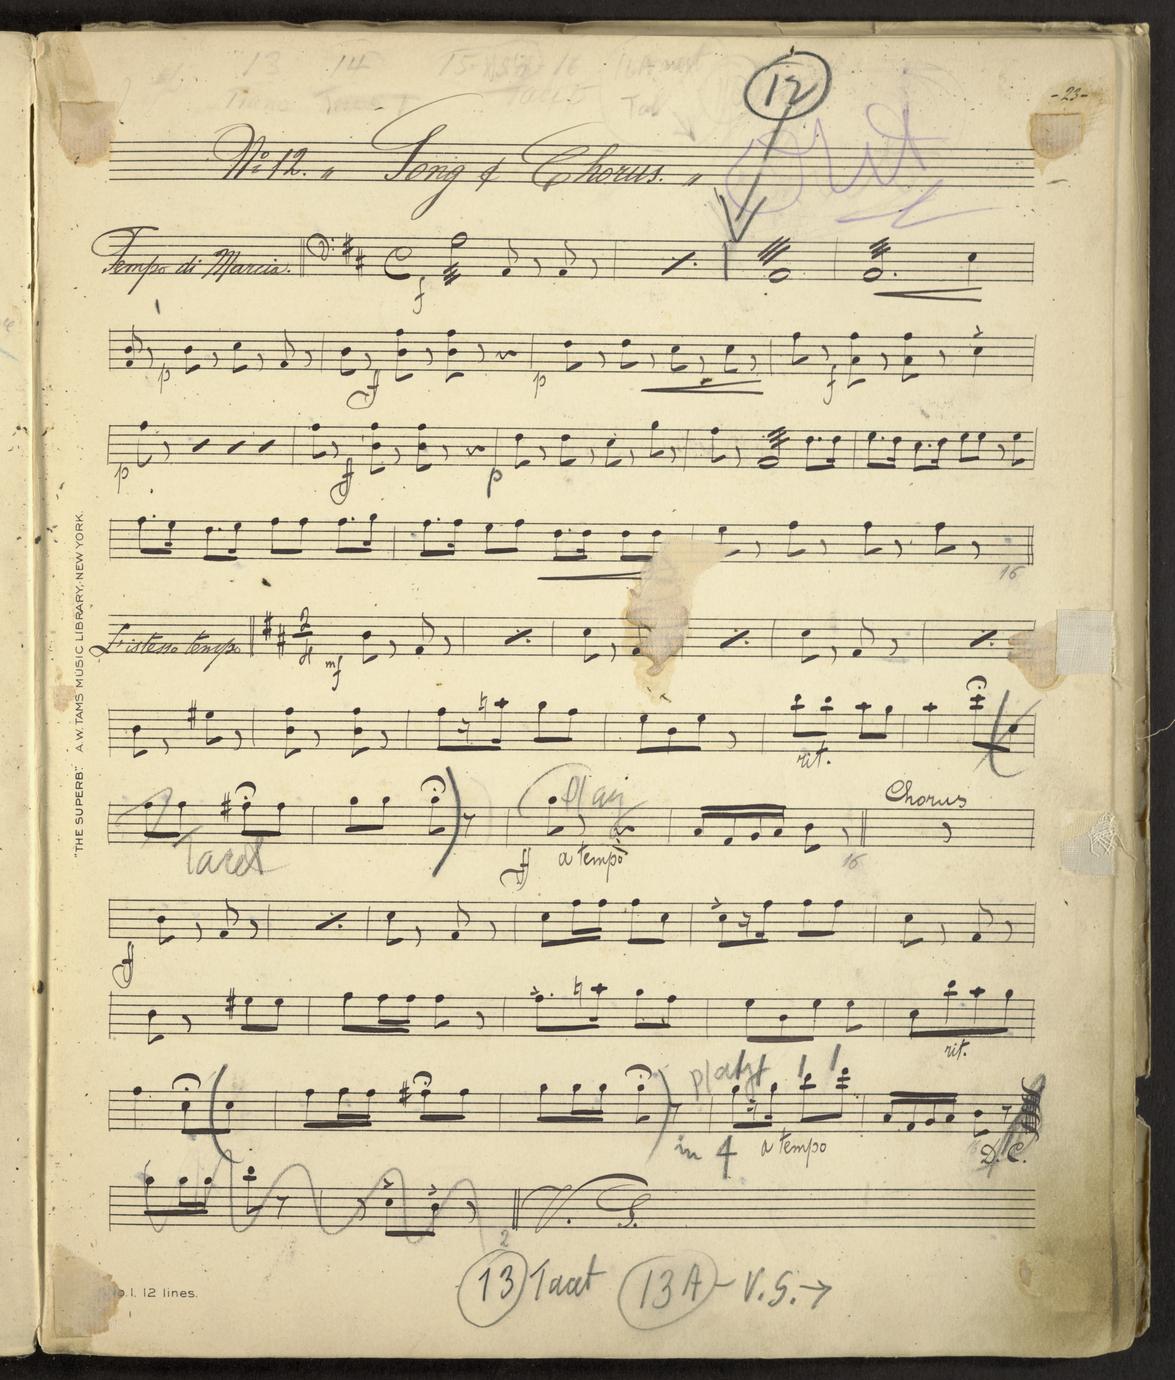 13 14 15 16
12
-23-
No. 12. „ Song & Chorus. „
Out
Tempo di Marcia.
f
p ff p f
p ff p
16
L'istesso tempo
2
mf
rit.
Chorus
Play
Tacet
ff a tempo
16
ff
rit.
platzt ! !
in 4 a tempo
D.C.
V. S.
2
13 Tacet 13A - V.S. →
No. 1. 12 lines.
"THE SUPERB." A.W. TAMS MUSIC LIBRARY, NEW YORK.